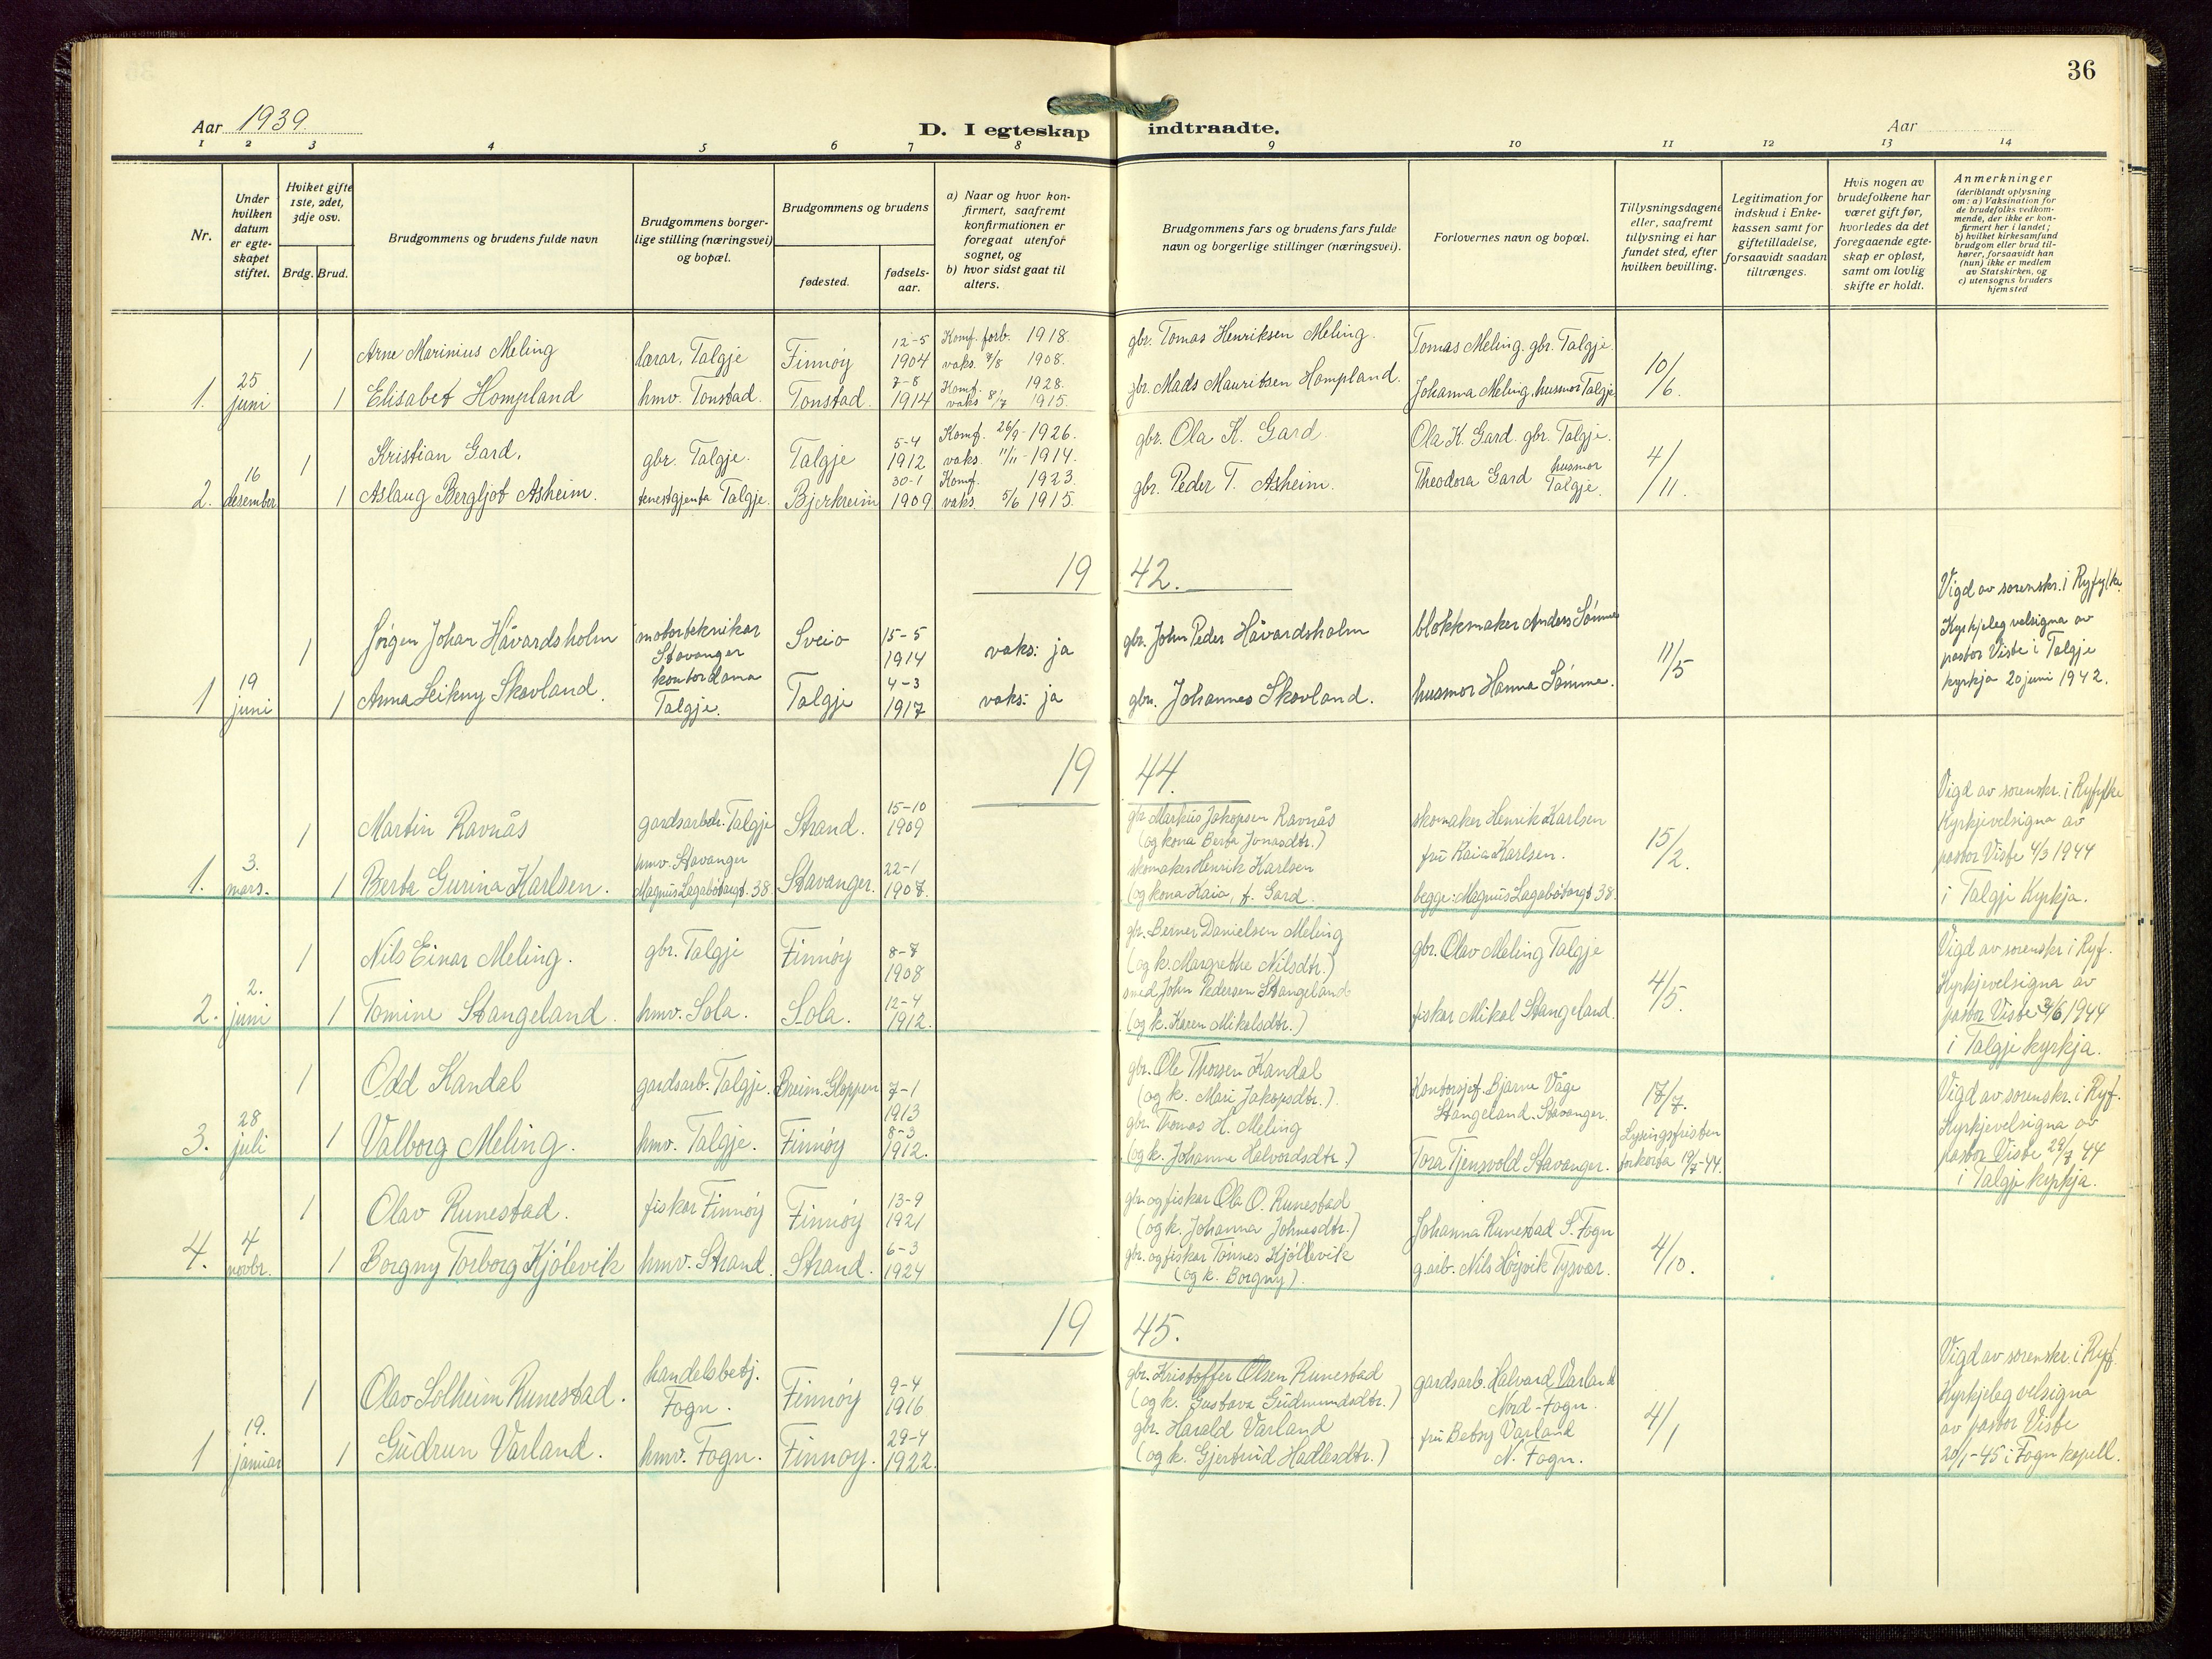 36
Aar 1939
D. I egteskap indtraadte.
Aar
1 2 3 4 5 6 7 8 9 10 11 12 13 14
Nr.
Under hvilken datum er egte-skapet stiftet.
Hviket gifte 1ste, 2det, 3dje osv.
Brdg. Brud.
Brudgommens og brudens fulde navn
Brudgommens borger-lige stilling (næringsvei) og bopæl.
Brudgommens og brudens
fødested.
fødsels-aar.
a) Naar og hvor kon-firmert, saafremt konfirmationen er foregaat utenfor sognet, og
b) hvor sidst gaat til alters.
Brudgommens fars og brudens fars fulde navn og borgerlige stillinger (næringsvei).
Forlovernes navn og bopæl.
Tillysningsdagene eller, saafremt tillysning ei har fundet sted, efter hvilken bevilling.
Legitimation for indskud i Enke-kassen samt for giftetilladelse, forsaavidt saadan tiltrænges.
Hvis nogen av brudefolkene har været gift før, hvorledes da det foregaaende egte-skap er opløst, samt om lovlig skifte er holdt.
Anmerkninger (deriblandt oplysning om: a) Vaksination for de brudefolks vedkom-mende, der ikke er kon-firmert her i landet; b) hvilket kirkesamfund brudgom eller brud til-hører, forsaavidt han (hun) ikke er medlem av Statskirken, og c) utensogns bruders hjemsted
1 Arne Marinius Meling lærar, Talgje Finnøy 12-5 1904 Komf. forb. 1918. vaks. 7/8 1908. gbr. Tomas Henriksen Meling. Tomas Meling. gbr. Talgje.
1. 25 juni 1 Elisabet Hompland hmv. Tonstad. Tonstad. 7-8 1914 Komf. 1928. vaks 8/7 1915. gbr. Mads Mauritsen Hompland. Johanna Meling, husmor Talgje 10/6.
1 Kristian Gard. gbr. Talgje. Talgje 5-4 1912 Komf. 26/9-1926. vaks. 11/11-1914. gbr. Ola K. Gard. Ola K. Gard. gbr. Talgje.
2. 16 desember 1 Aslaug Bergljot Asheim. tenestgjenta Talgje. Bjerkreim 30-1 1909 Komf. 1923. vaks. 5/6 1915. gbr. Peder T. Asheim. Theodora Gard husmor Talgje. 4/11.
19 42.
1 Jørgen Johan Håvardsholm motorteknikar Stavanger Sveio 15-5 1914 vaks: ja gbr. John Peder Håvardsholm blokkmaker Anders Sømme
1 19 juni 1 Anna Leikny Skovland. kontordama Talgje. Talgje 4-3 1917 vaks: ja gbr. Johannes Skovland. husmor Hanna Sømme. 11/5
Vigd av sorenskr. i Ryfylke.
Kyrkjeleg velsigna av
pastor Viste i Talgje
kyrkja 20 juni 1942.
19 44.
1 Martin Ravnås gardsarbdr. Talgje Strand. 15-10 1909 gbr. Markus Jakopsen Ravnås (og kona Berta Jonasdtr.) skomaker Henrik Karlsen
1. 3. mars. 1 Berta Gurina Karlsen. hmv. Stavanger Magnus Lagabøtargt. 38 Stavanger. 22-1 1907. skomaker Henrik Karlsen (og kona Kaia, f. Gard. fru Kaia Karlsen. begge: Magnus Lagabøtargt 38. 15/2.
Vigd av sorenskr. i Ryfylke
Kyrkjevelsigna av
pastor Viste 4/3 1944
i Talgje Kyrkja.
1 Nils Einar Meling. gbr. Talgje Finnøy 8-7 1908 gbr. Berner Danielsen Meling (og k. Margrethe Nilsdtr.) gbr. Olav Meling Talgje
2. 2. juni 1 Tomine Stangeland. hmv. Sola. Sola. 12-4 1912. smed John Pedersen Stangeland (og k. Karen Mikalsdtr.) fiskar Mikal Stangeland. 4/5.
Vigd av sorenskr i Ryf.
Kyrkjevelsigna av
pastor Viste 3/6 1944
i Talgje kyrkja.
1 Odd Kandal gardsarb. Talgje. Breim. Gloppen 7-1 1913 gbr. Ole Thorsen Kandal (og k. Mari Jakopsdtr.) Kontorsjef. Bjarne Våge Stangeland. Stavanger. 17/7.
3. 28 juli 1 Valborg Meling. hmv. Talgje. Finnøy 8-3 1912. gbr. Thomas H. Meling (og k. Johanne Halvordsdtr.) Tora Tjensvold Stavanger. Lysingsfristen forkorta 19/7-44.
Vigd av sorenskr. i Ryf.
Kyrkjevelsigna av
pastor Viste 29/7 44
i Talgje kyrkja.
1 Olav Runestad. fiskar Finnøy Finnøy 13-9 1921 gbr. og fiskar Ola O. Runestad (og k. Johanna Johnsdtr.) Johanna Runestad S. Fogn
4. 4 novbr. 1 Borgny Torborg Kjølevik hmv. Strand. Strand. 6-3 1924 gbr. og fiskar Tønnes Kjøllevik (og k. Borgny). g.arb. Nils Høyvik Tysvær. 4/10.
19 45.
1 Olav Solheim Runestad. handelsbetj. Fogn. Finnøy 9-4 1916 gbr. Kristoffer Olsen Runestad (og k. Gustava Gudmundsdtr.) gardsarb. Halvard Varland Nord-Fogn.
1 19. januar 1 Gudrun Varland. hmv. Fogn. Finnøy. 29-4 1922. gbr. Harald Varland (og k. Gjertrud Hadlesdtr.) fru Betsy Varland N. Fogn. 4/1
Vigd av sorenskr. i Ryf.
Kyrkjeleg velsigna
av pastor Viste
20/1-45 i Fogn kapell.